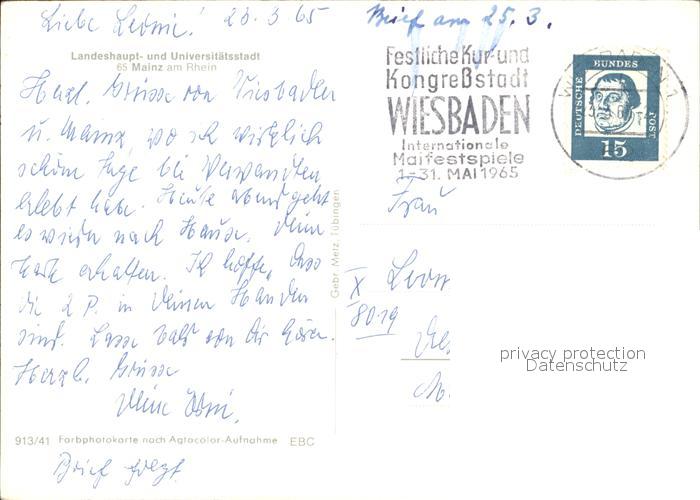 Liebe Leonie! 23.3.65
Brief am 25.3.
Landeshaupt- und Universitätsstadt
65 Mainz am Rhein
Herzl. Grüsse von Wiesbaden
u. Mainz, wo ich wirklich
schöne Tage bei Verwandten
erlebt habe. Heute abend geht
es wieder nach Hause. Deine
Karte erhalten. Ich hoffe, dass
die 2 P. in Deinen Händen
sind. Lasse bald von Dir hören.
Herzl. Grüsse
Deine
913/41 Farbphotokarte nach Agfacolor-Aufnahme EBC
Brief folgt
Gebr. Metz, Tübingen
Festliche Kur- und
Kongreßstadt
WIESBADEN
Internationale
Maifestspiele
1.-31. MAI 1965
WIESBADEN 1
DEUTSCHE BUNDESPOST
15
Frau
Leon
X
8019
privacy protection
Datenschutz